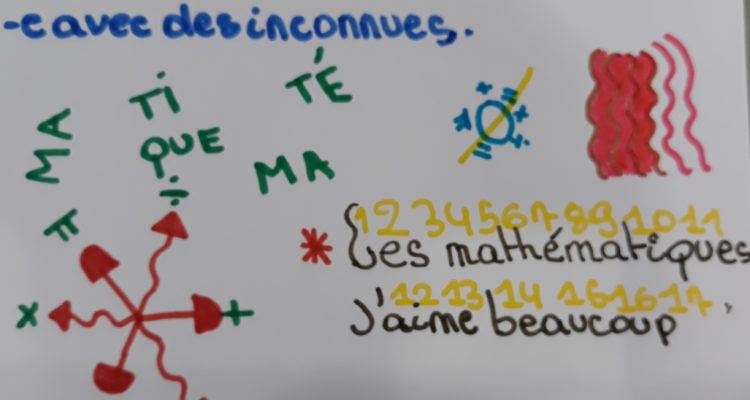 -e avec des inconnues.
MA TI TÉ
QUE MA
π ÷
1 2 3 4 5 6 7 8 9 10 11
Les mathématiques
x +
12 13 14 15 16 17
J'aime beaucoup